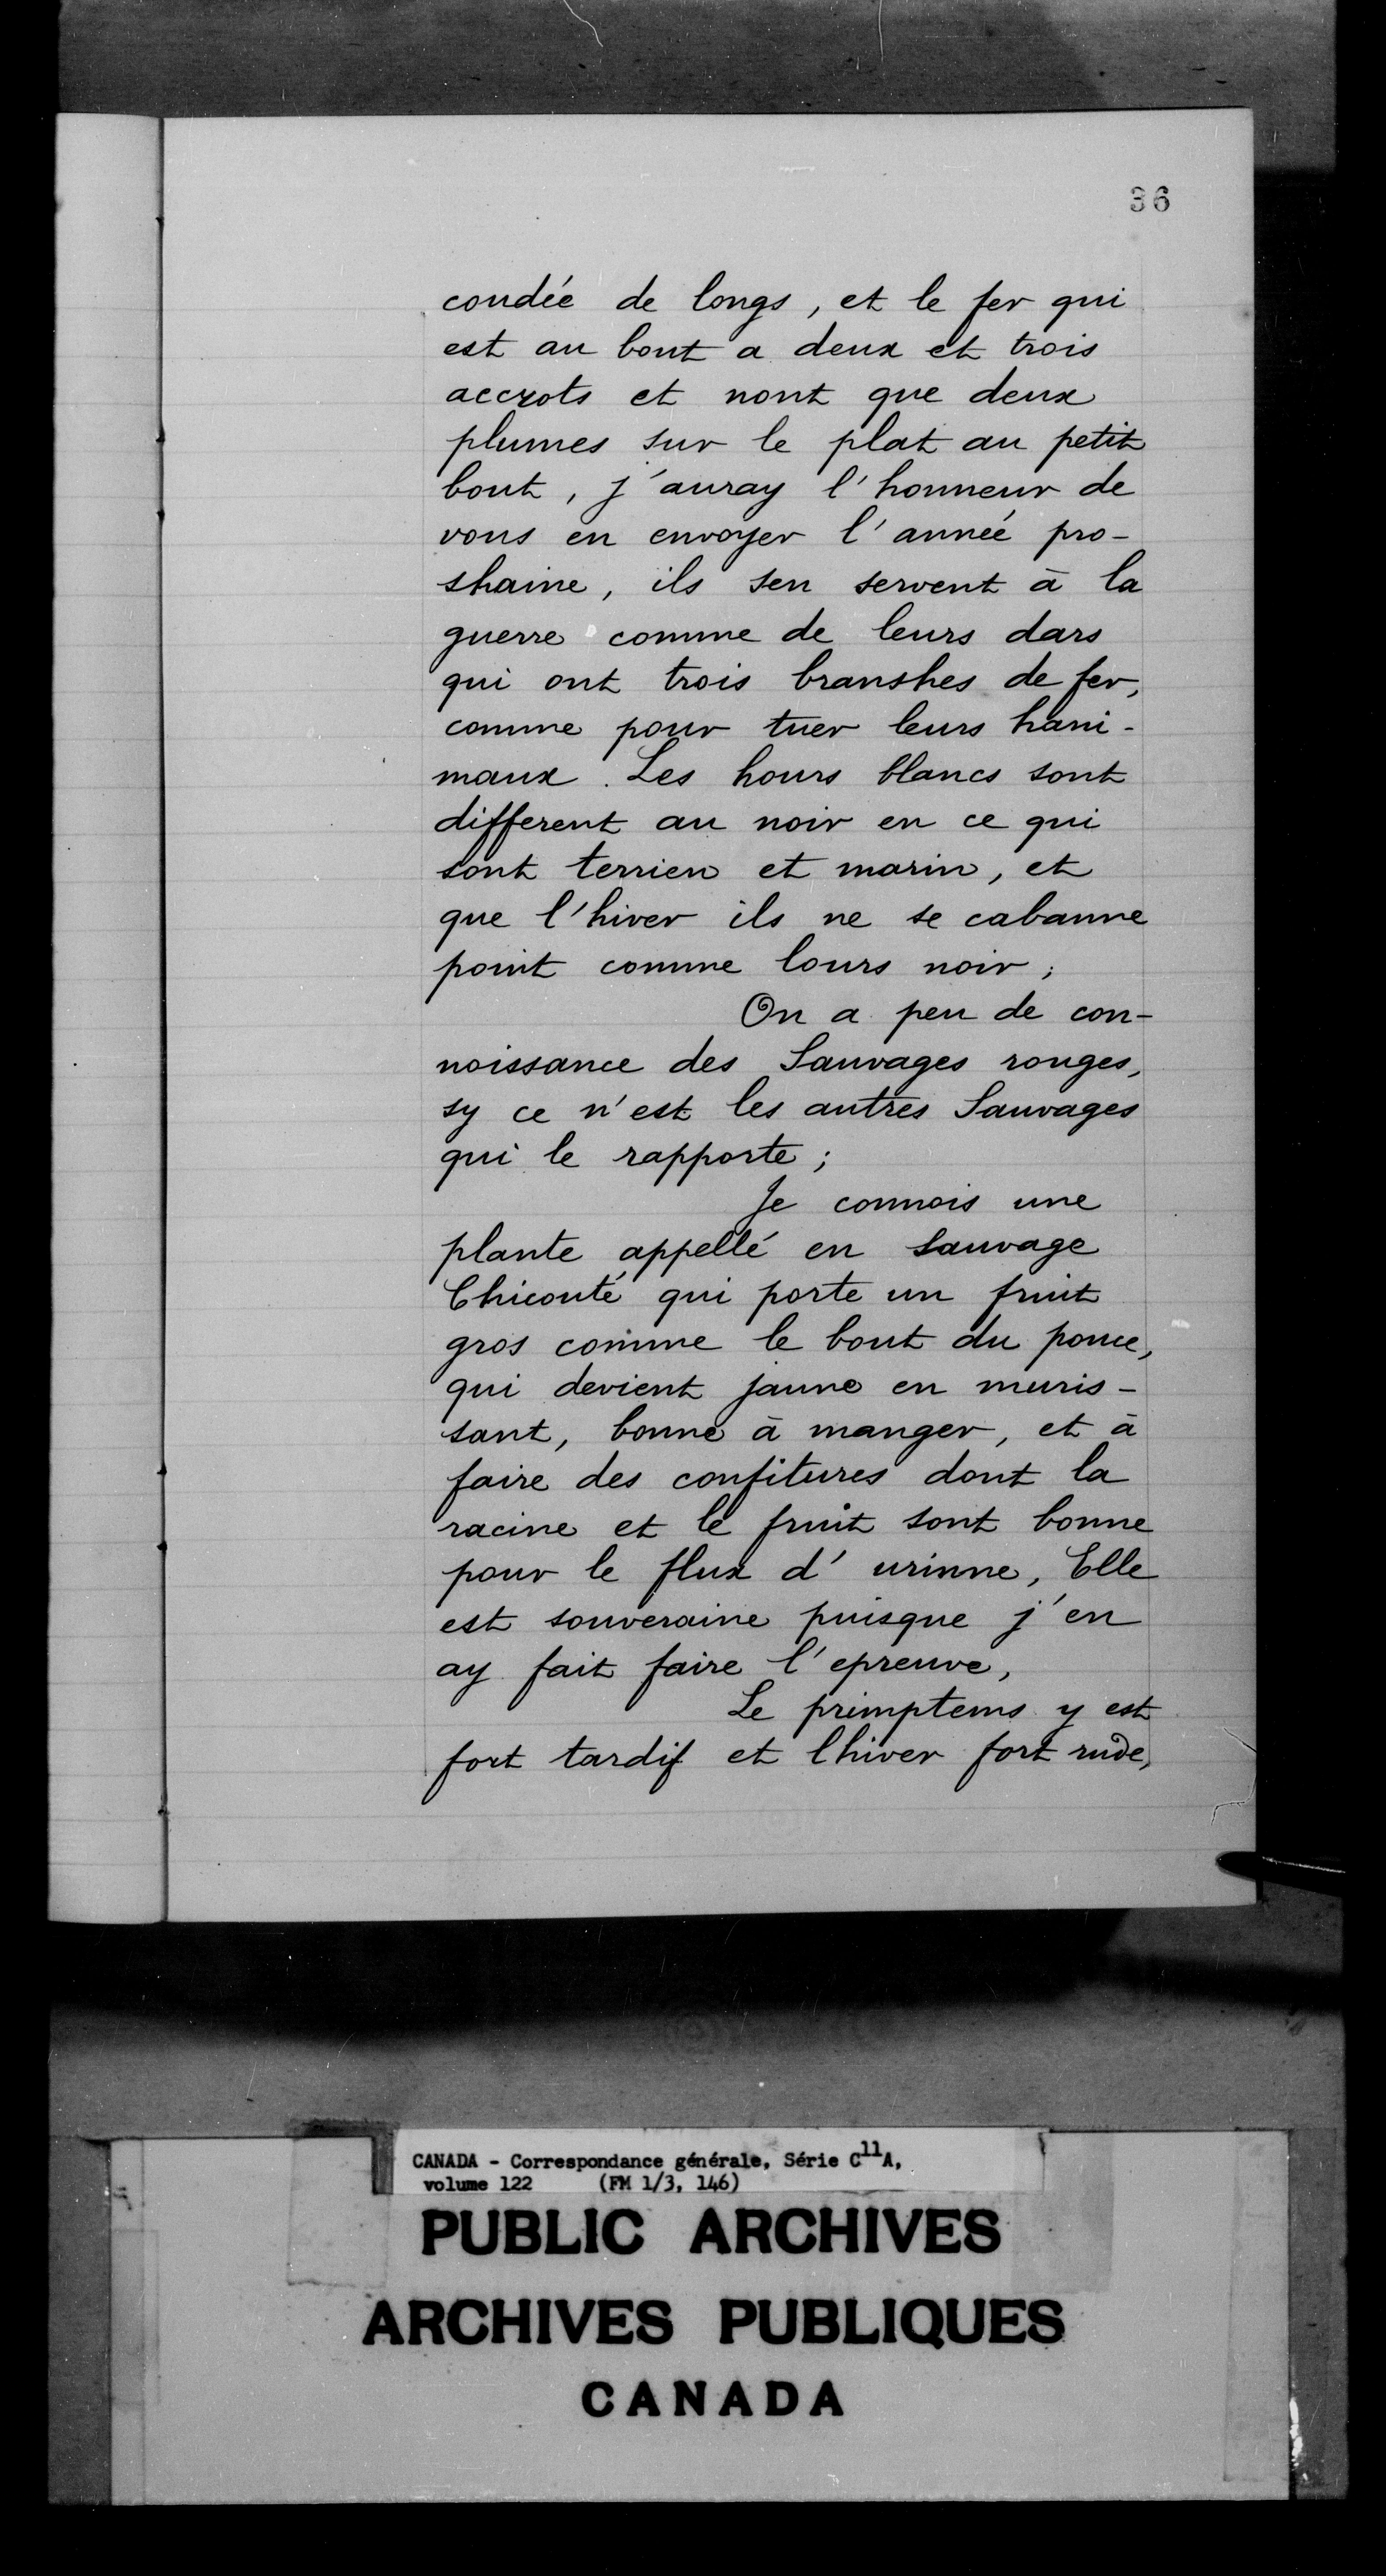 36
coudée de longs, et le fer qui
est au bout a deux et trois
accrots et nont que deux
plumes sur le plat au petit
bout, j'auray l'honneur de
vous en envoyer l'année pro-
shaine, ils sen servent à la
guerre comme de leurs dars
qui ont trois branshes de fer,
comme pour tuer leurs hani-
maux. Les hours blancs sont
different au noir en ce qui
sont terrien et marin, et
que l'hiver ils ne se cabanne
point comme lours noir;
On a peu de con-
noissance des Sauvages rouges,
sy ce n'est les autres Sauvages
qui le rapporte;
Je connois une
plante appellé en Sauvage
Chicouté qui porte un fruit
gros comme le bout du pouce,
qui devient jaune en muris-
sant, bonne à manger, et à
faire des confitures dont la
racine et le fruit sont bonne
pour le flux d'urinne, Elle
est souveraine puisque j'en
ay fait faire l'epreuve,
Le primptems y est
fort tardif et lhiver fort rude,
CANADA - Correspondance générale, Série C11A,
volume 122 (FM 1/3, 146)
PUBLIC ARCHIVES
ARCHIVES PUBLIQUES
CANADA